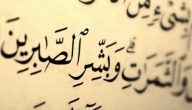 بِشَىْءٍ مِّنَ
وَالثَّمَرَٰتِ ۗ وَبَشِّرِ الصَّابِرِينَ